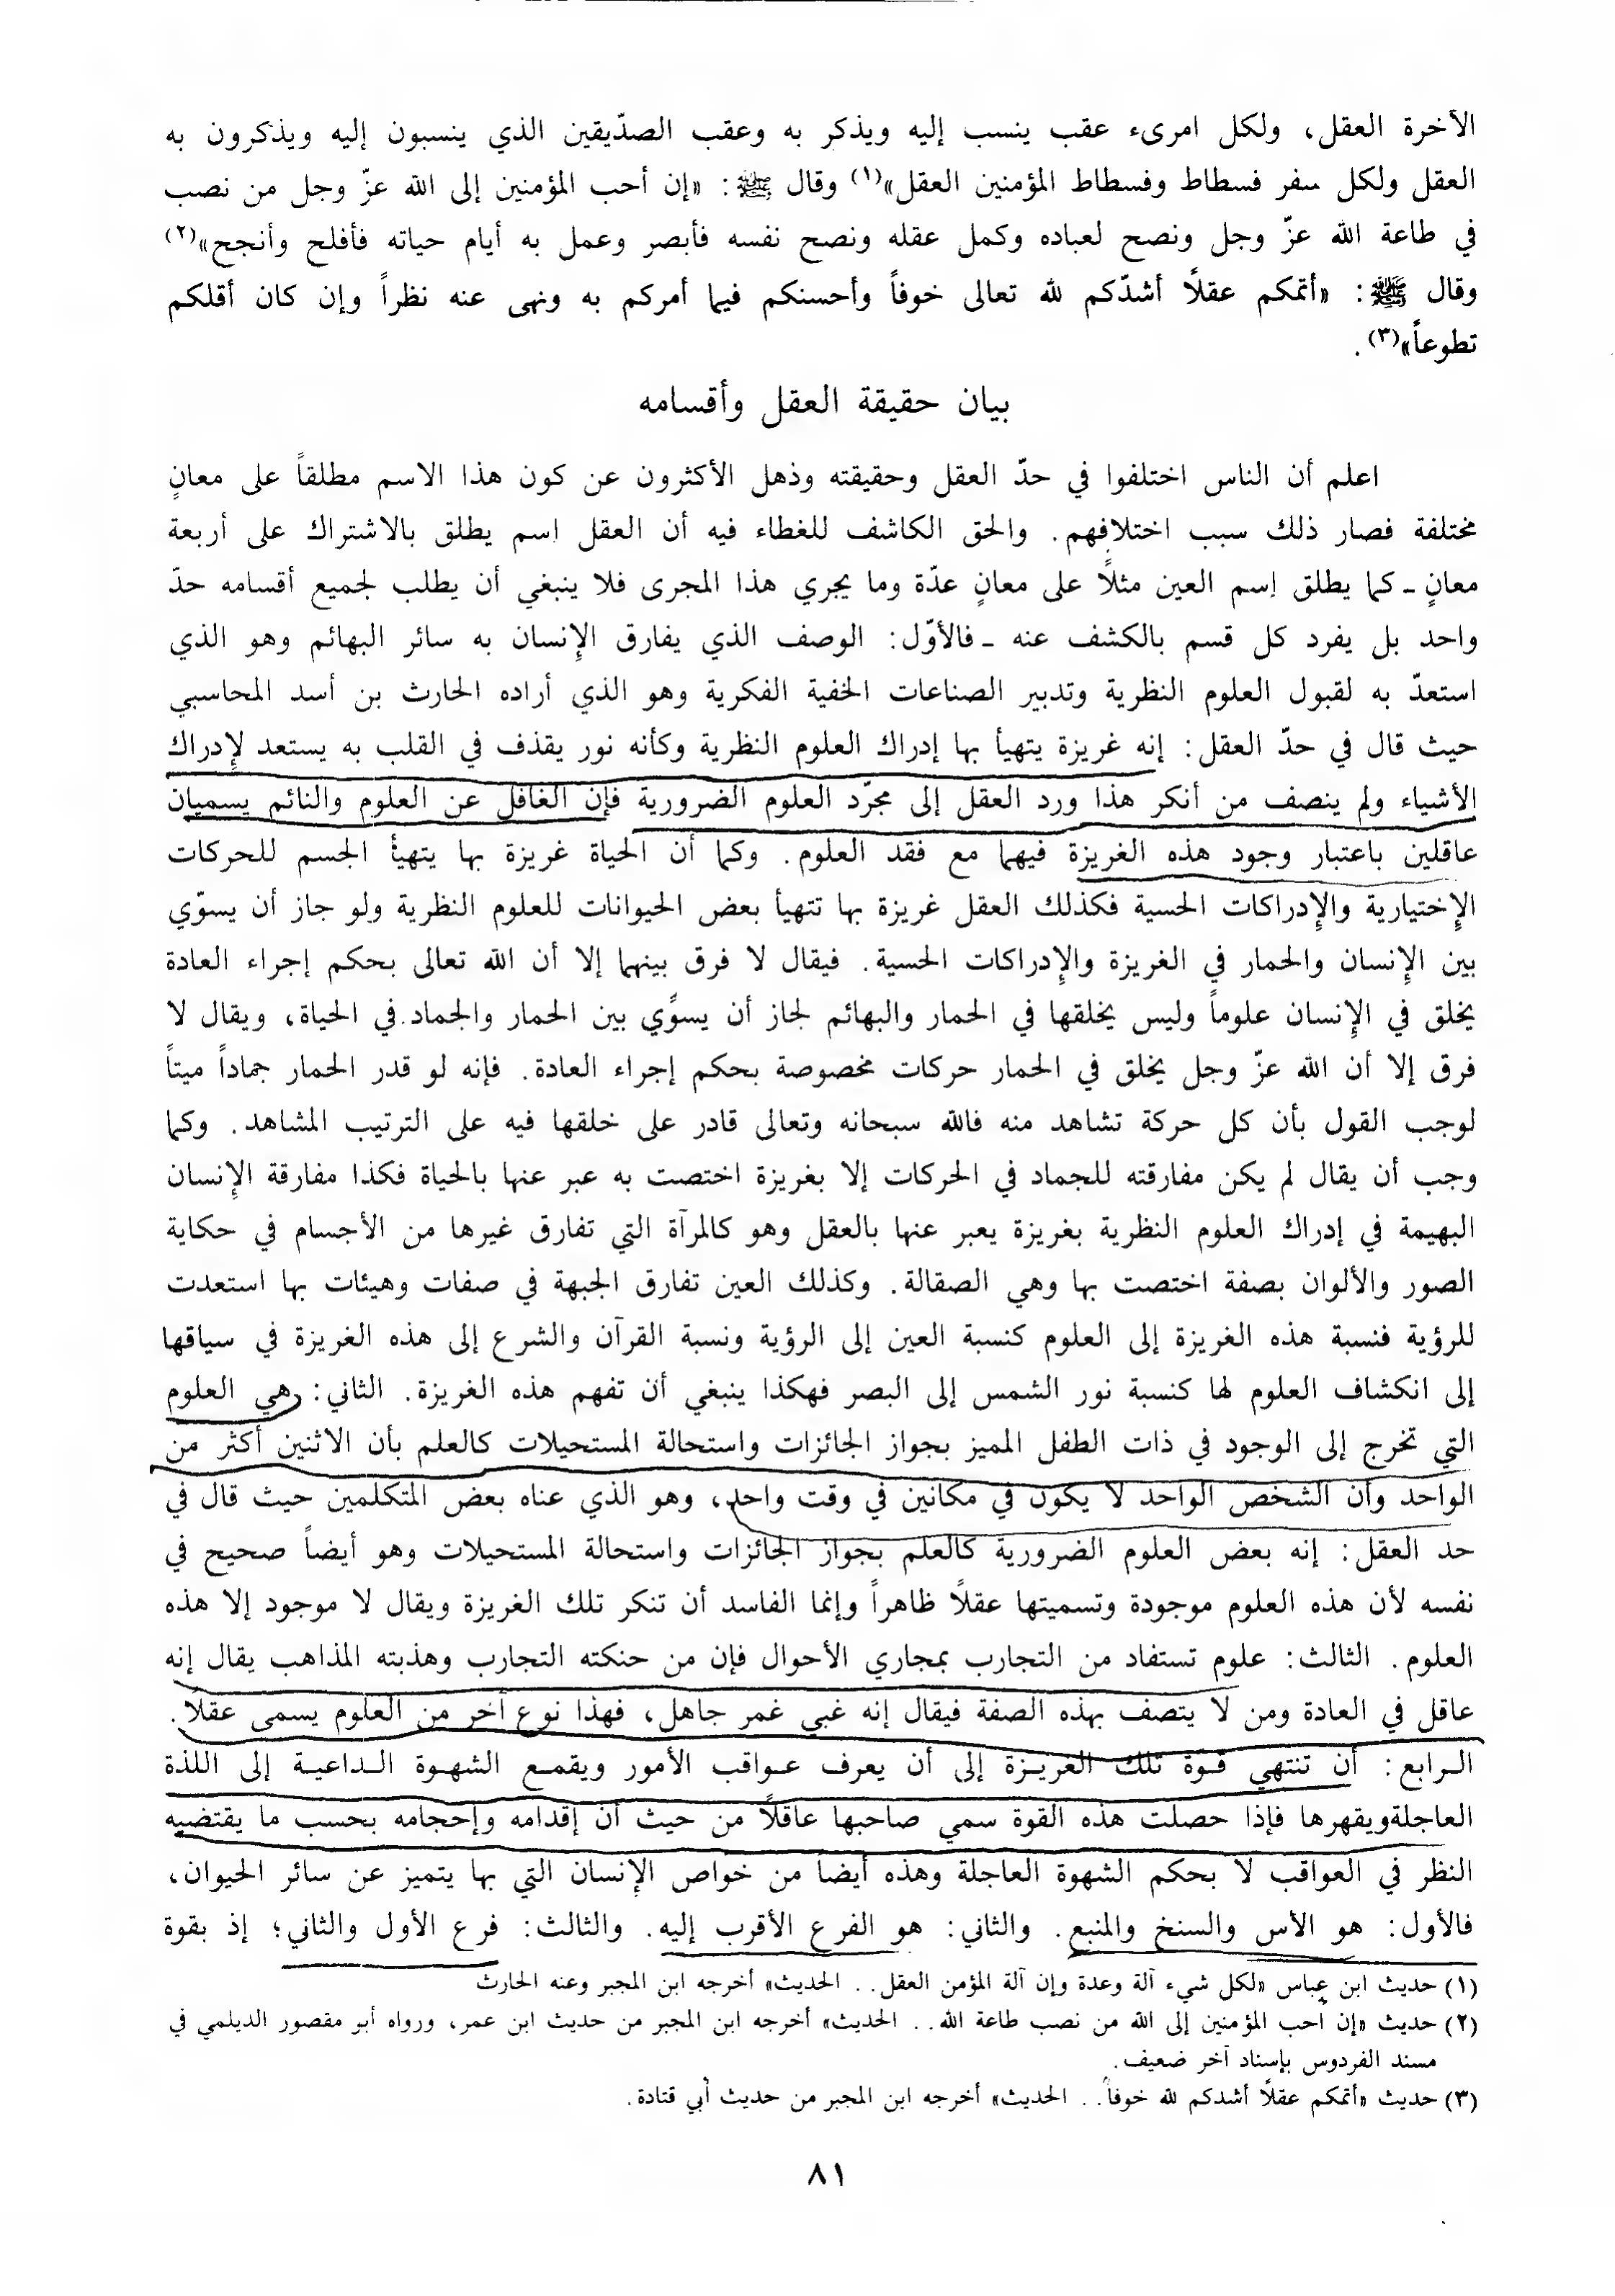 الآخرة العقل، ولكل امرىء عقب ينسب إليه ويذكر به وعقب الصدّيقين الذي ينسبون إليه ويذكرون به
العقل ولكل سفر فسطاط وفسطاط المؤمنين العقل»(١) وقال ﷺ: «إن أحب المؤمنين إلى الله عزّ وجل من نصب
في طاعة الله عزّ وجل ونصح لعباده وكمل عقله ونصح نفسه فأبصر وعمل به أيام حياته فأفلح وأنجح»(٢)
وقال ﷺ: «أتمكم عقلاً أشدّكم لله تعالى خوفاً وأحسنكم فيما أمركم به ونهى عنه نظراً وإن كان أقلكم
تطوعاً»(٣).
بيان حقيقة العقل وأقسامه
اعلم أن الناس اختلفوا في حدّ العقل وحقيقته وذهل الأكثرون عن كون هذا الاسم مطلقاً على معانٍ
مختلفة فصار ذلك سبب اختلافهم. والحق الكاشف للغطاء فيه أن العقل اسم يطلق بالاشتراك على أربعة
معانٍ ـ كما يطلق إسم العين مثلاً على معانٍ عدّة وما يجري هذا المجرى فلا ينبغي أن يطلب لجميع أقسامه حدّ
واحد بل يفرد كل قسم بالكشف عنه ـ فالأوّل: الوصف الذي يفارق الإنسان به سائر البهائم وهو الذي
استعدّ به لقبول العلوم النظرية وتدبير الصناعات الخفية الفكرية وهو الذي أراده الحارث بن أسد المحاسبي
حيث قال في حدّ العقل: إنه غريزة يتهيأ بها إدراك العلوم النظرية وكأنه نور يقذف في القلب به يستعد لإدراك
الأشياء ولم ينصف من أنكر هذا ورد العقل إلى مجرّد العلوم الضرورية فإن الغافل عن العلوم والنائم يسميان
عاقلين باعتبار وجود هذه الغريزة فيهما مع فقد العلوم. وكما أن الحياة غريزة بها يتهيأ الجسم للحركات
الإختيارية والإدراكات الحسية فكذلك العقل غريزة بها تتهيأ بعض الحيوانات للعلوم النظرية ولو جاز أن يسوّي
بين الإنسان والحمار في الغريزة والإدراكات الحسية. فيقال لا فرق بينهما إلا أن الله تعالى بحكم إجراء العادة
يخلق في الإنسان علوماً وليس يخلقها في الحمار والبهائم لجاز أن يسوّي بين الحمار والجماد في الحياة، ويقال لا
فرق إلا أن الله عزّ وجل يخلق في الحمار حركات مخصوصة بحكم إجراء العادة. فإنه لو قدر الحمار جماداً ميتاً
لوجب القول بأن كل حركة تشاهد منه فالله سبحانه وتعالى قادر على خلقها فيه على الترتيب المشاهد. وكما
وجب أن يقال لم يكن مفارقته للجماد في الحركات إلا بغريزة اختصت به عبر عنها بالحياة فكذا مفارقة الإنسان
البهيمة في إدراك العلوم النظرية بغريزة يعبر عنها بالعقل وهو كالمرآة التي تفارق غيرها من الأجسام في حكاية
الصور والألوان بصفة اختصت بها وهي الصقالة. وكذلك العين تفارق الجبهة في صفات وهيئات بها استعدت
للرؤية فنسبة هذه الغريزة إلى العلوم كنسبة العين إلى الرؤية ونسبة القرآن والشرع إلى هذه الغريزة في سياقها
إلى انكشاف العلوم لها كنسبة نور الشمس إلى البصر فهكذا ينبغي أن تفهم هذه الغريزة. الثاني: هي العلوم
التي تخرج إلى الوجود في ذات الطفل المميز بجواز الجائزات واستحالة المستحيلات كالعلم بأن الاثنين أكثر من
الواحد وأن الشخص الواحد لا يكون في مكانين في وقت واحد، وهو الذي عناه بعض المتكلمين حيث قال في
حد العقل: إنه بعض العلوم الضرورية كالعلم بجواز الجائزات واستحالة المستحيلات وهو أيضاً صحيح في
نفسه لأن هذه العلوم موجودة وتسميتها عقلاً ظاهراً وإنما الفاسد أن تنكر تلك الغريزة ويقال لا موجود إلا هذه
العلوم. الثالث: علوم تستفاد من التجارب بمجاري الأحوال فإن من حنكته التجارب وهذبته المذاهب يقال إنه
عاقل في العادة ومن لا يتصف بهذه الصفة فيقال إنه غبي غمر جاهل، فهذا نوع آخر من العلوم يسمى عقلاً.
الرابع: أن تنتهي قوة تلك الغريزة إلى أن يعرف عواقب الأمور ويقمع الشهوة الداعية إلى اللذة
العاجلةويقهرها فإذا حصلت هذه القوة سمي صاحبها عاقلاً من حيث أن إقدامه وإحجامه بحسب ما يقتضيه
النظر في العواقب لا بحكم الشهوة العاجلة وهذه أيضاً من خواص الإنسان التي بها يتميز عن سائر الحيوان،
فالأول: هو الأس والسنخ والمنبع. والثاني: هو الفرع الأقرب إليه. والثالث: فرع الأول والثاني؛ إذ بقوة
(١) حديث ابن عباس «لكل شيء آلة وعدة وإن آلة المؤمن العقل.. الحديث» أخرجه ابن المجبر وعنه الحارث
(٢) حديث «إن أحب المؤمنين إلى الله من نصب طاعة الله.. الحديث» أخرجه ابن المجبر من حديث ابن عمر، ورواه أبو مقصور الديلمي في
مسند الفردوس بإسناد آخر ضعيف.
(٣) حديث «أتمكم عقلاً أشدكم لله خوفاً.. الحديث» أخرجه ابن المجبر من حديث أبي قتادة.
٨١